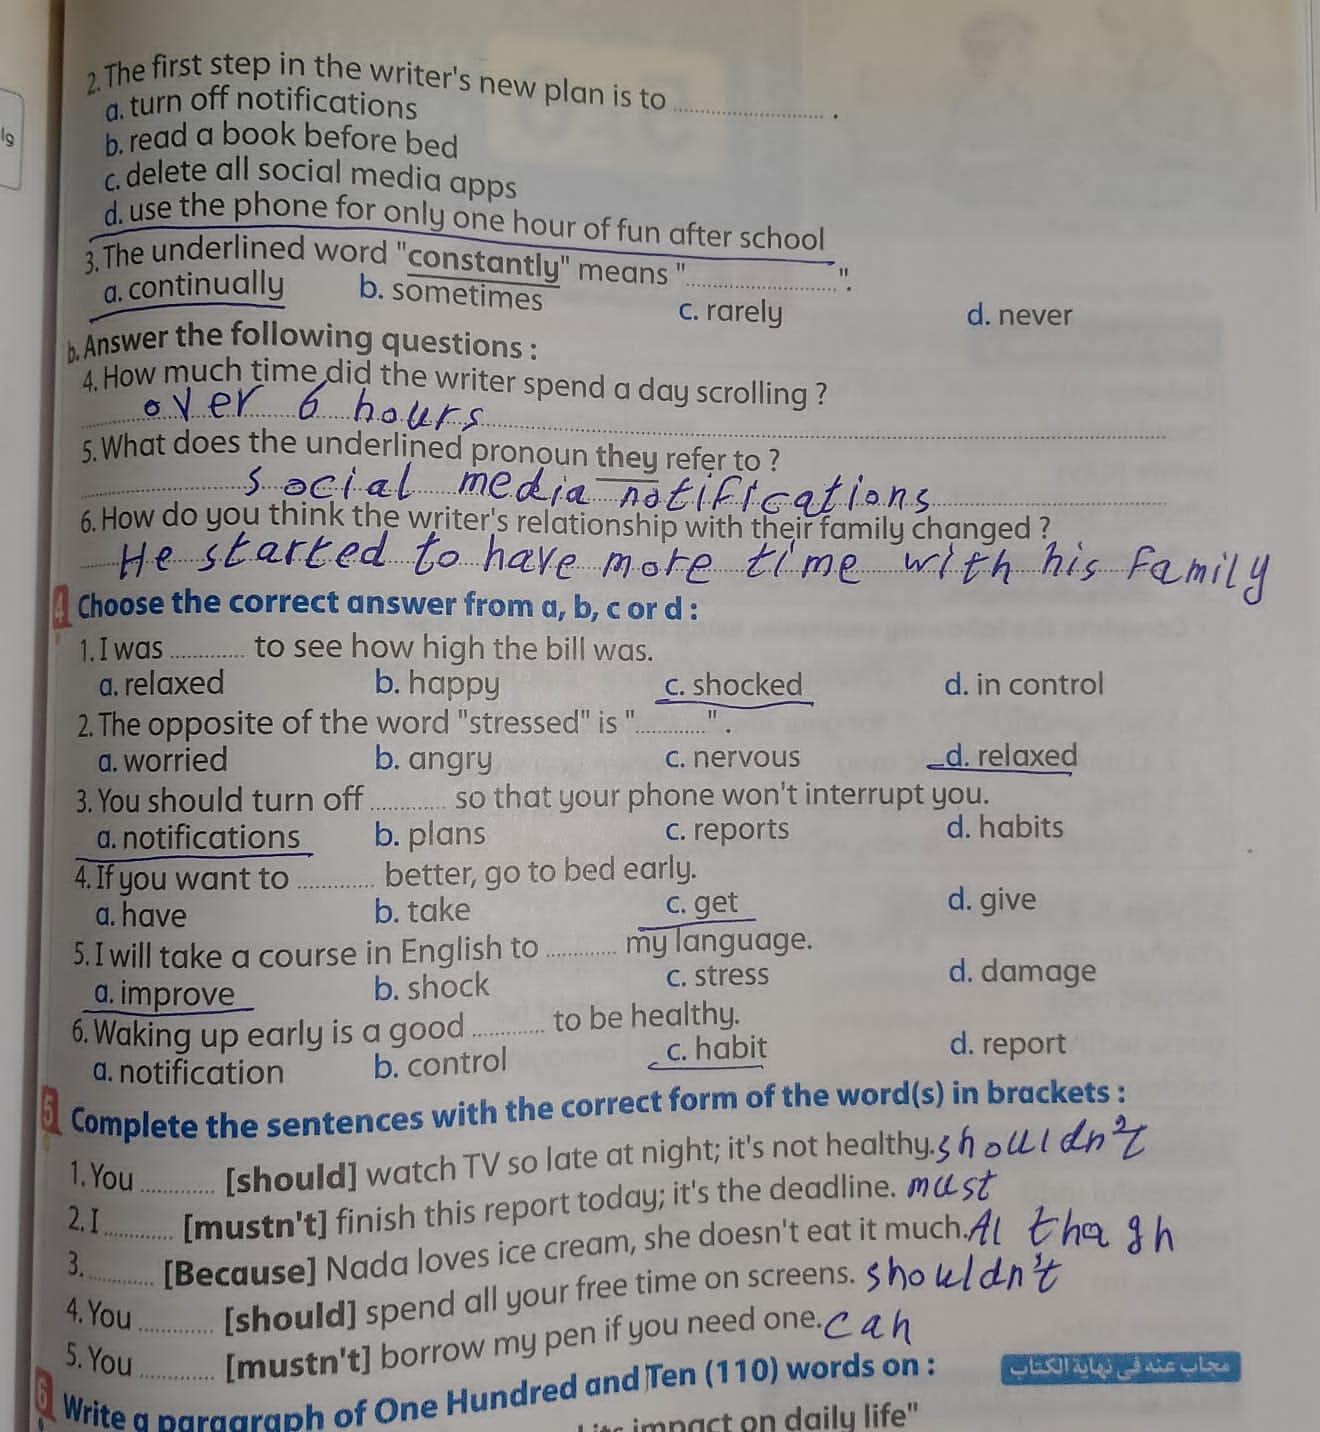 2. The first step in the writer's new plan is to .................... .
a. turn off notifications
b. read a book before bed
c. delete all social media apps
d. use the phone for only one hour of fun after school
3. The underlined word "constantly" means "....................".
a. continually b. sometimes c. rarely d. never
b. Answer the following questions :
4. How much time did the writer spend a day scrolling ?
over 6 hours
5. What does the underlined pronoun they refer to ?
social media notifications
6. How do you think the writer's relationship with their family changed ?
He started to have more time with his family
4 Choose the correct answer from a, b, c or d :
1. I was ............ to see how high the bill was.
a. relaxed b. happy c. shocked d. in control
2. The opposite of the word "stressed" is "............" .
a. worried b. angry c. nervous d. relaxed
3. You should turn off ............ so that your phone won't interrupt you.
a. notifications b. plans c. reports d. habits
4. If you want to ............ better, go to bed early.
a. have b. take c. get d. give
5. I will take a course in English to ............ my language.
a. improve b. shock c. stress d. damage
6. Waking up early is a good ............ to be healthy.
a. notification b. control c. habit d. report
5 Complete the sentences with the correct form of the word(s) in brackets :
1. You ............ [should] watch TV so late at night; it's not healthy. shouldn't
2. I ............ [mustn't] finish this report today; it's the deadline. must
3. ............ [Because] Nada loves ice cream, she doesn't eat it much. Al thagh
4. You ............ [should] spend all your free time on screens. shouldn't
5. You ............ [mustn't] borrow my pen if you need one. can
مجاب عنه في نهاية الكتاب
6 Write a paragraph of One Hundred and Ten (110) words on :
its impact on daily life"